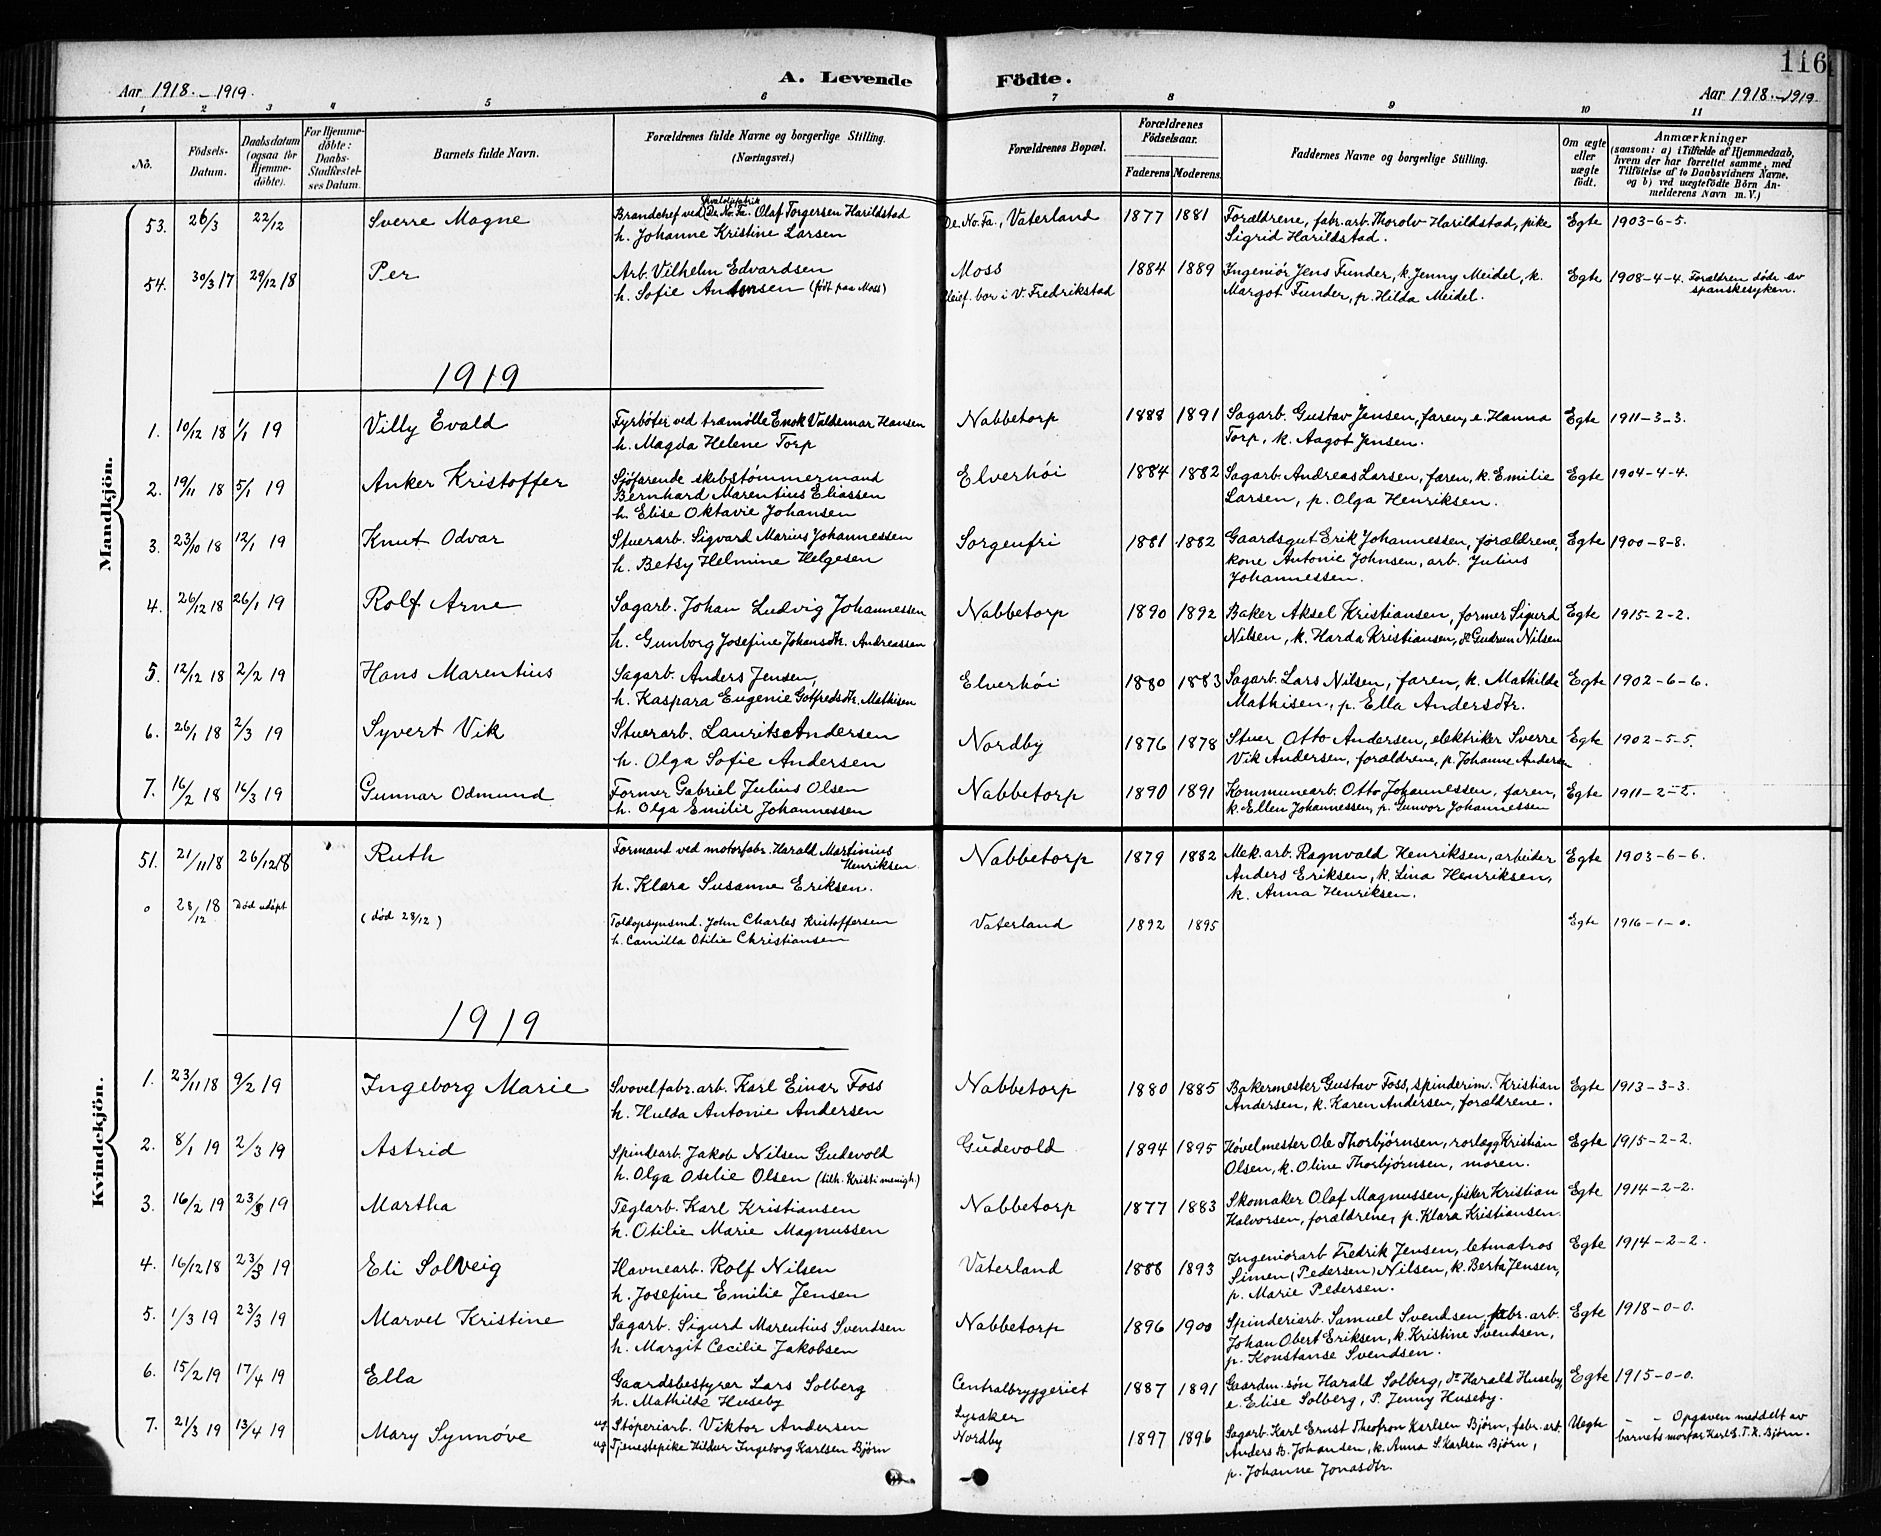 116
A. Levende Födte.
Aar 1918.-1919.
Aar 1918.-1919.
1 2 3 4 5 6 7 8 9 10 11
No.
Födsels-Datum.
Daabsdatum (ogsaa for Hjemme-döbte).
For Hjemme-döbte: Daabs-Stadfæstel-ses Datum.
Barnets fulde Navn.
Forældrenes fulde Navne og borgerlige Stilling. (Næringsvei.)
Forældrenes Bopæl.
Forældrenes Födselsaar.
Faderens Moderens.
Faddernes Navne og borgerlige Stilling.
Om ægte eller uægte födt.
Anmærkninger
(saasom: a) i Tilfælde af Hjemmedaab, hvem der har forrettet samme, med Tilföielse af to Daabsvidners Navne, og b) ved uægtefödte Börn An-melderens Navn m. V.)
Mandkjön.
53. 26/3 22/12 Sverre Magne Brandchef ved De No. Fa. Olaf Torgersen Harildstad De. No. Fa., Vaterland 1877 1881 Forældrene, fabr. arb. Thorolv Harildstad, pike Egte 1903-6-5.
h. Johanne Kristine Larsen Sigrid Harildstad.
54. 30/3 17 29/12 18 Per Arb. Vilhelm Edvardsen Moss 1884 1889 Ingeniör Jens Funder, k. Jenny Meidel, k. Egte 1908-4-4. Forældren döde av
h. Sofie Antonsen (födt paa Moss) Pleief. bor i V. Fredrikstad Margot Funder, p. Hilda Meidel. spanskesyken.
1919
1. 10/12 18 1/1 19 Villy Evald Fyrböter ved træmölle Enok Valdemar Hansen Nabbetorp 1888 1891 Sagarb. Gustav Jensen, faren, e. Hanna Egte 1911-3-3.
h. Magda Helene Torp Torp, k. Aagot Jensen.
2. 19/11 18 5/1 19 Anker Kristoffer Sjöfarende skibstömmermand Elverhöi 1884 1882 Sagarb. Andreas Larsen, faren, k. Emilie Egte 1904-4-4.
Bernhard Marentius Eliassen Larsen, p. Olga Henriksen.
h. Elise Oktavie Johansen
3. 23/10 18 12/1 19 Knut Odvar Stuerarb. Sigvard Marius Johannessen Sorgenfri 1881 1882 Gaardsgut Erik Johannessen, forældrene, Egte 1900-8-8.
h. Betsy Helmine Helgesen kone Antonie Johnsen, arb. Julius
Johannessen.
4. 26/12 18 26/1 19 Rolf Arne Sagarb. Johan Ludvig Johannessen Nabbetorp 1890 1892 Baker Aksel Kristiansen, former Sigurd Egte 1915-2-2.
h. Gunborg Josefine Johansdtr. Andreassen Nilsen, k. Harda Kristiansen, dr Gudrun Nilsen
5. 12/12 18 2/2 19 Hans Marentius Sagarb. Anders Jensen, Elverhöi 1880 1883 Sagarb. Lars Nilsen, faren, k. Mathilde Egte 1902-6-6.
h. Kaspara Eugenie Gotfredsdtr. Mathisen Mathisen, p. Ella Andersdtr.
6. 26/1 18 2/3 19 Syvert Vik Stuerarb. Laurits Andersen Nordby 1876 1878 Stuer Otto Andersen, elektriker Sverre Egte 1902-5-5.
h. Olga Sofie Andersen Vik Andersen, forældrene, p. Johanne Andersen
7. 16/2 18 16/3 19 Gunnar Odmund Former Gabriel Julius Olsen Nabbetorp 1890 1891 Kommunearb. Otto Johannessen, faren, Egte 1911-2-2.
h. Olga Emilie Johannessen k. Ellen Johannessen, p. Gunvor Johannessen
Kvindekjön.
51. 21/11 18 26/12 18 Ruth Formand ved motorfabr. Harald Martinius Nabbetorp 1879 1882 Mek. arb. Ragnvald Henriksen, arbeider Egte 1903-6-6.
Henriksen Anders Eriksen, k. Lina Henriksen,
h. Klara Susanne Eriksen. k. Anna Henriksen.
0 28/12 18 Död udöpt (död 28/12) Toldopsynsmd. John Charles Kristoffersen Vaterland 1892 1895 Egte 1916-1-0.
h. Camilla Otilie Christiansen
1919
1. 23/11 18 9/2 19 Ingeborg Marie Svovelfabr. arb. Karl Einar Foss Nabbetorp 1880 1885 Bakermester Gustav Foss, spinderim. Kristian Egte 1913-3-3.
h. Hulda Antonie Andersen Andersen, k. Karen Andersen, forældrene.
2. 8/1 19 2/3 19 Astrid Spindearb. Jakob Nilsen Gudevold Gudevold 1894 1895 Hövelmester Ole Thorbjörnsen, rorlægg Kristian Egte 1915-2-2.
h. Olga Otelie Olsen (tilh. Kristi menigh.) Olsen, k. Oline Thorbjörnsen, moren.
3. 16/2 19 23/3 19 Martha Teglarb. Karl Kristiansen Nabbetorp 1877 1883 Skomaker Olaf Magnussen, fisker Kristian Egte 1914-2-2.
h. Otilie Marie Magnussen Halvorsen, forældrene, p. Klara Kristiansen.
4. 16/12 18 23/3 19 Eli Solveig Havnearb. Rolf Nilsen Vaterland 1888 1893 Ingeniörarb Fredrik Jensen, letmatros Egte 1914-2-2.
h. Josefine Emilie Jensen Simen (Pedersen) Nilsen, k. Berta Jensen,
p. Marie Pedersen.
5. 1/3 19 23/3 19 Marvel Kristine Sagarb. Sigurd Marentius Svendsen Nabbetorp 1896 1900 Spinderiarb. Samuel Svendsen, fabr. arb. Egte 1918-0-0.
h. Margit Cecilie Jakobsen Johan Obert Eriksen, k. Kristine Svendsen,
p. Konstanse Svendsen.
6. 15/2 19 17/4 19 Ella Gaardsbestyrer Lars Solberg Centralbryggeriet 1887 1891 Gaardm. sön Harald Solberg, dr Harald Huseby, Egte 1915-0-0.
h. Mathilde Huseby e. Elise Solberg, p. Jenny Huseby.
7. 21/3 19 13/4 19 Mary Synnöve ug. Stöperiarb. Viktor Andersen Lysaker 1897 1896 Sagarb. Karl Ernst Theofron Karlsen Björn, fabr. arb. Uegte - - Opgaven meddelt av
ug. Tjenestepike Hildur Ingeborg Karlsen Björn Nordby Anders B. Johansen, k. Anna S. Karlsen Björn, barnets morfar Karl E. T. K. Björn.
p. Johanne Jonasdtr.